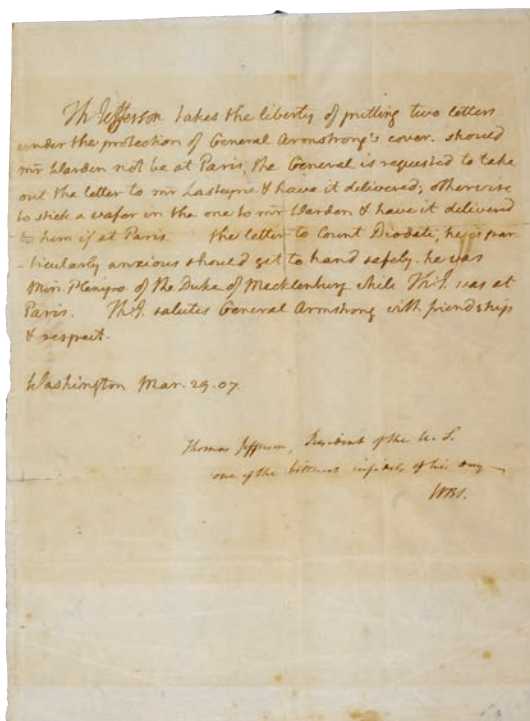 Th Jefferson takes the liberty of putting two letters
under the protection of General Armstrong's cover. should
mr Warden not be at Paris, the General is requested to take
out the letter to mr Lasteyrie & have it delivered; otherwise
to stick a wafer in the one to mr Warden & have it delivered
to him if at Paris. the letter to Count Diodati, he is par
-ticularly anxious should get to hand safely. he was
Min. Plenipo. of the Duke of Mecklenburg while Th: J. was at
Paris. Th: J. salutes General Armstrong with friendship
& respect.
Washington Mar. 29. 07.
Thomas Jefferson, President of the U. S.
one of the bitterest infidels of his day —
WBS.